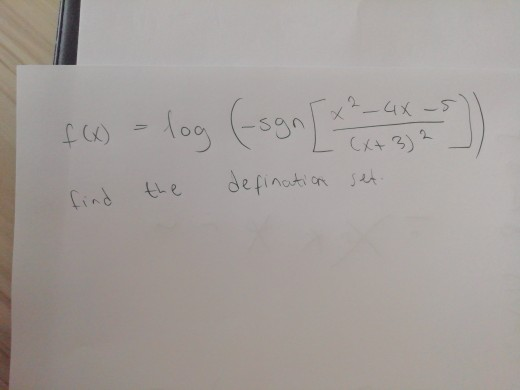 f(x) = log (-sgn [ x² - 4x - 5 / (x + 3)² ])
find the defination set.